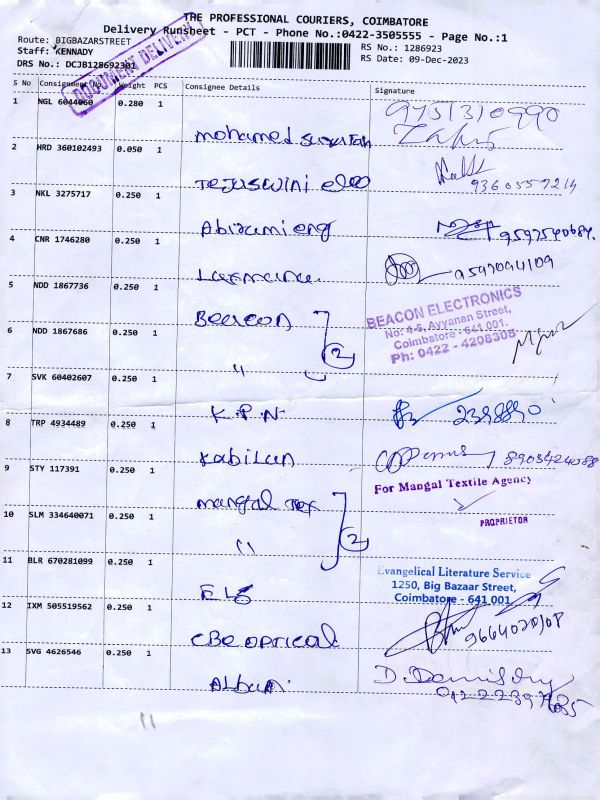 THE PROFESSIONAL COURIERS, COIMBATORE
Delivery Runsheet - PCT - Phone No.:0422-3505555 - Page No.:1
Route: BIGBAZARSTREET
RS No.: 1286923
Staff: KENNADY
RS Date: 09-Dec-2023
DRS No.: DCJB128692301
DOCUMENT DELIVERY
S No Consignment No Weight PCS Consignee Details Signature
1 NGL 6044060 0.280 1
9751310990
Mohamed
2 HRD 360102493 0.050 1
Tejaswini elec
9360557214
3 NKL 3275717 0.250 1
Abirami eng
9597540684.
4 CNR 1746280 0.250 1
Laxmana.
9597094109
5 NDD 1867736 0.250 1
Beacon
BEACON ELECTRONICS
No: 4-5, Ayyanan Street,
Coimbatore - 641 001.
Ph: 0422 - 4208308
6 NDD 1867686 0.250 1
" 2
7 SVK 60402607 0.250 1
K.P.N
2398890
8 TRP 4934489 0.250 1
Kabilan
8903424088
9 STY 117391 0.250 1
Mangal Tex
For Mangal Textile Agency
PROPRIETOR
10 SLM 334640071 0.250 1
" 2
11 BLR 670281099 0.250 1
ELS
Evangelical Literature Service
1250, Big Bazaar Street,
Coimbatore - 641 001
12 IXM 505519562 0.250 1
CBE OPTICAL
13 SVG 4626546 0.250 1
Album.
11